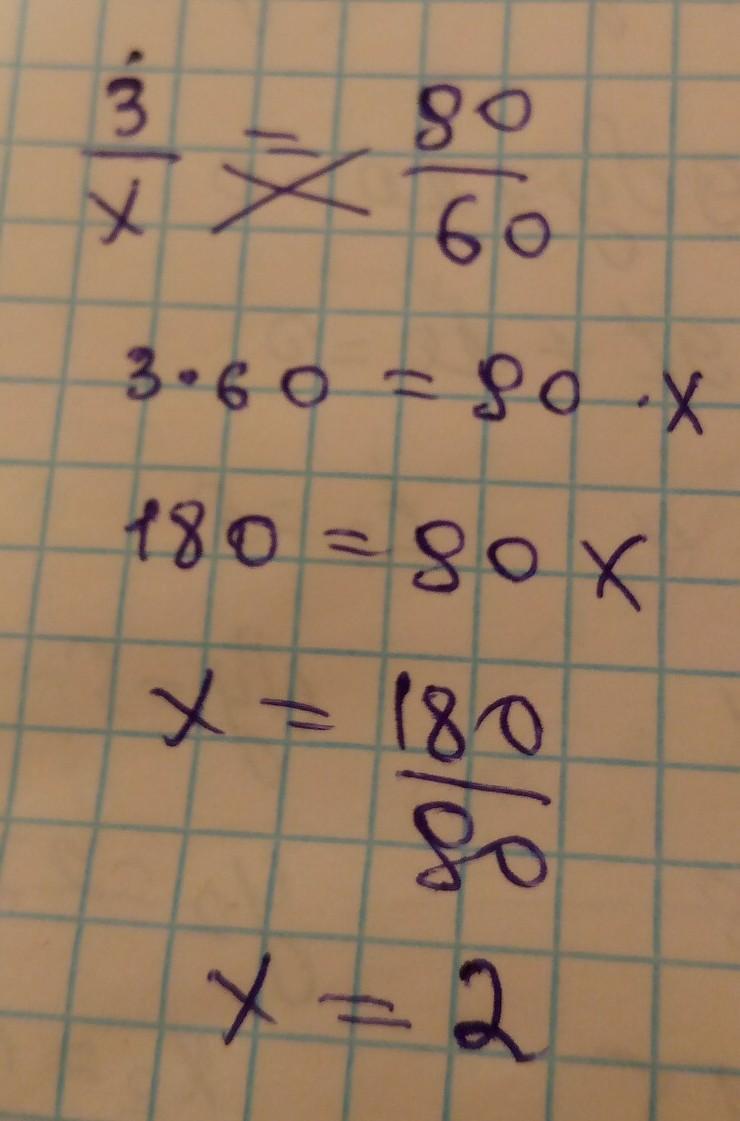 3/x = 90/60
3·60 = 90·x
180 = 90x
x = 180/90
x = 2